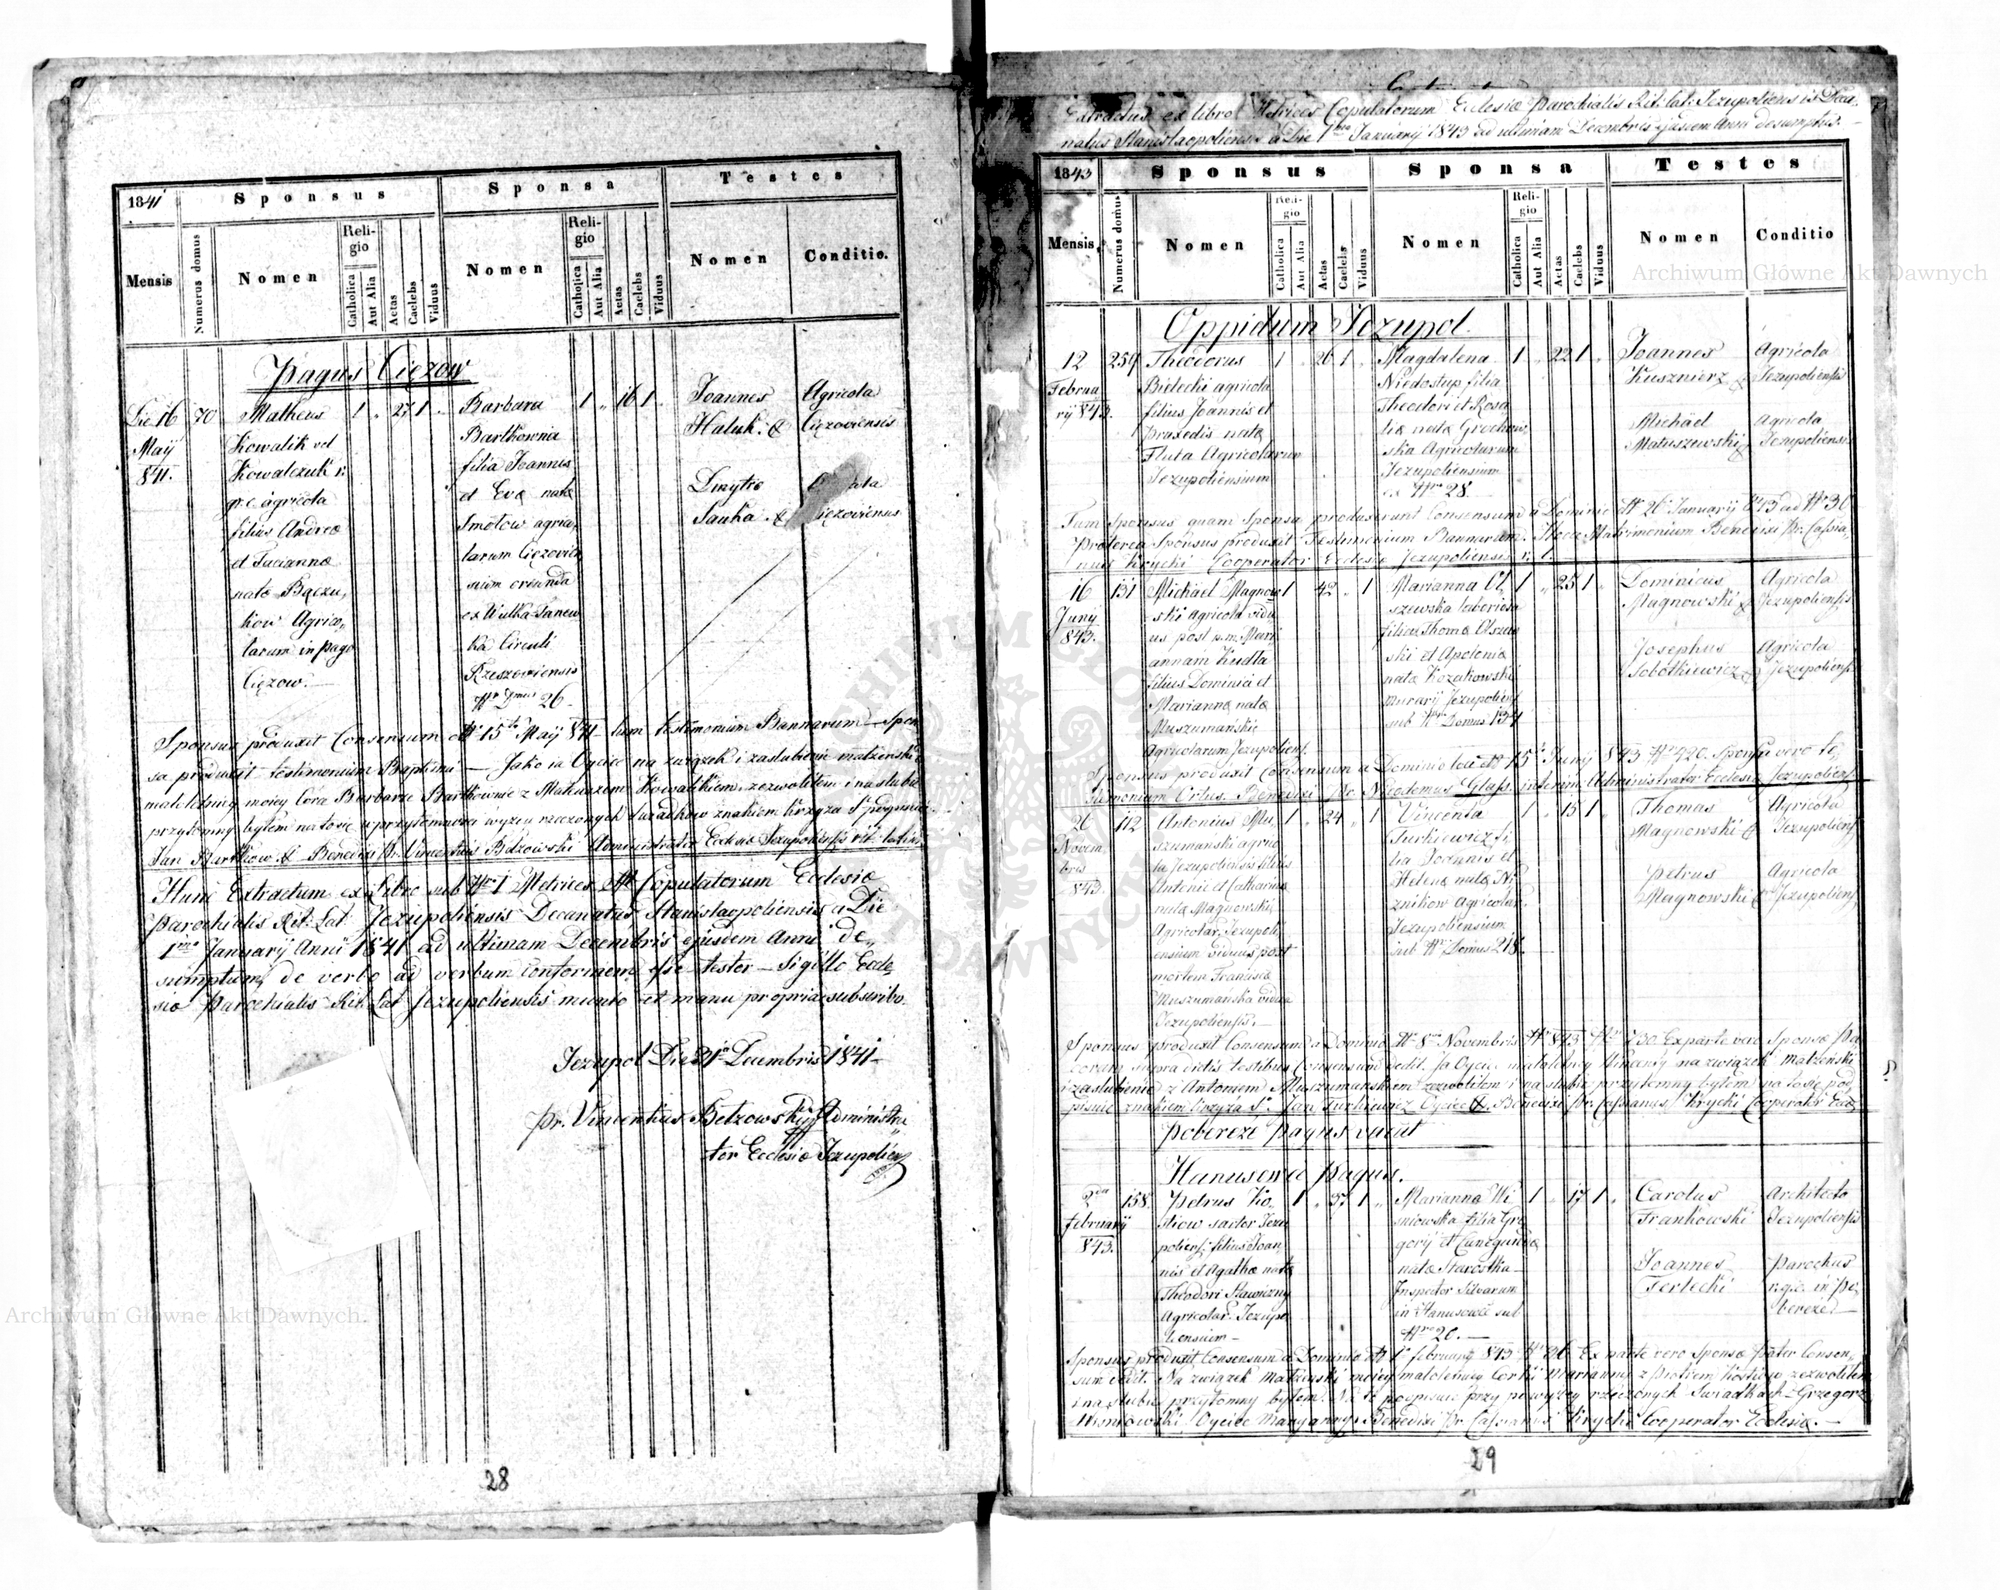 1841
Sponsus
Sponsa
Testes
Mensis
Numerus domus
Nomen
Religio
Catholica
Aut Alia
Aetas
Caelebs
Viduus
Nomen
Religio
Catholica
Aut Alia
Aetas
Caelebs
Viduus
Nomen
Conditio.
Pagus Cięzow
Die 16
Maij
841.
70
Matheus
Kowalik vel
Kowalczuk r:
gr. c. agricola
filius Andreæ
et Luciannæ
natæ Bączu,
kow Agrico,
larum in pago
Cięzow.
1 " 27 1 "
Barbara
Bartkownia
filia Joannis
et Evæ natæ
Smołow agrico,
larum Cięzovien
sium oriunda
ex Wulka Tanew
ska Circuli
Rzeszoviensis
Nro Domus 26
1 " 16 1 "
Joannes
Haluk. +
Dmytro
Sauka +
Agricola
Ciezoviensis
Ciezoviensis
Sponsus produxit Consensum dto 15ta Maij 841 tum testimonium Bannorum — Spon
sa produxit testimonium Baptismi — Jako ia Oyciec na związek i zaslubienie małzenskie
maloletniey moiey Cora Barbarze Bartkownie z Mateuszem Kowalikiem zezwoliłem i na slubie
przytomny byłem na to się w przytomnosci wyzey rzeczonych swiadkow znakiem krzyza S. podpisuie
Jan Bartkow + Benedixi Pr. Vincentius Bełzowski Administrator Ecclesiæ Jezupoliensis rit. latini
Hunc Extractum ex Libro sub Nro I Metrices Copulatorum Ecclesiæ
Parochialis Rit. Lat. Jezupoliensis Decanatus Stanislaopoliensis a Die
1ma Januarij Anni 1841 ad ultimam Decembris ejusdem Anni de,
sumptum de verbo ad verbum conformem esse testor — Sigillo Eccle,
siæ Parochialis Rit. Lat Jezupoliensis munio et manu propria subscribo
Jezupol Die 31a Decembris 1841
Pr. Vincentius Bełzowski Administra
tor Ecclesiæ Jezupolien
28
Extractus ex libro Metrices Copulatorum Ecclesiæ Parochialis Rit. lat. Jezupoliensis Deca,
natus Stanislaopoliensis a Die 1ma Januarij 1843 ad ultimam Decembris ejusdem Anni desumptus.
1843
Sponsus
Sponsa
Testes
Mensis
Numerus domus
Nomen
Religio
Catholica
Aut Alia
Aetas
Caelebs
Viduus
Nomen
Religio
Catholica
Aut Alia
Aetas
Caelebs
Viduus
Nomen
Conditio
Oppidum Jezupol
12
Februa
rij 843.
259
Theodorus
Bielecki agricola
filius Joannis et
Praxedis natæ
Fluta Agricolarum
Jezupoliensium
1 " 26 1 "
Magdalena
Niedostup filia
Theodori et Rosa
liæ natæ Grochow
ska Agricolarum
Jezupoliensium
ex Nro 28
1 " 22 1 "
Joannes
Kusznierz +
Michael
Matuszewski +
Agricola
Jezupoliensis
Agricola
Jezupoliensis
Tum Sponsus quam Sponsa produxerunt Consensum a Dominio dto 26 Januarij 843 ad Nro 30
Præterea Sponsus produxit Testimonium Bannorum. Hocce Matrimonium Benedixi Pr. Cassia,
nus Krycki Cooperator Ecclesiæ Jezupoliensis r. l.
16
Junij
843.
131
Michael Magnow
ski Agricola vidu
us post p.m. Mari
annam Kudla
filius Dominici et
Mariannæ natæ
Muszumański
Agricolarum Jezupoliens.
1 " 42 " 1
Marianna Ol,
szewska laboriosa
filia Thomæ Olszew
ski et Apoloniæ
natæ Kozakowski
murarij Jezupoliens
sub Nro Domus 134
1 " 25 1 "
Dominicus
Magnowski +
Josephus
Sobotkiewicz +
Agricola
Jezupoliensis
Agricola
Jezupoliensis
Sponsus produxit Consensum a Dominio loci dto 15a Junij 843 Nro 420. Sponsa vero te,
stimonium Ortus. Benedixi Pr. Nicodemus Glass interim. Administrator Ecclesiæ Jezupoliens
26
Novem
bris
843.
112
Antonius Mu,
szumański agrico
la Jezupoliensis filius
Antonii et Catharinæ
natæ Magnowski
Agricolar. Jezupoli,
ensium viduus post
mortem Franciscæ
Muszumańska vidua
Jezupoliensis.
1 " 24 " 1
Vincenta
Turkiewicz fi,
lia Joannis et
Helenæ natæ Ni
znikow Agricolar.
Jezupoliensium
sub Nro Domus 218
1 " 15 1 "
Thomas
Magnowski +
Petrus
Magnowski +
Agricola
Jezupoliens
Agricola
Jezupoliens
Sponsus produxit Consensum a Dominio dto 8va Novembris 843 Nro 730 Ex parte vero Sponsæ Pa,
coram supra dictis testibus Consensum dedit. Ja Oyciec maloletniey na związek Malzenski
i zaslubienie z Antonem Muszumańskiem zezwoliłem i na slubie przytomny byłem na to się pod
pisuie znakiem krzyza S. Jan Turkiewicz Oyciec + Benedixi Pr. Cassianus Krycki Cooperator Eccl
Pobereze Pagus vacat
Hanusewce Pagus.
2da
februarij
843.
158.
Petrus Ko,
stiow sartor Jezu
poliens. filius Joan,
nis et Agathæ natæ
Theodori Sławiczny
Agricolar. Jezupo
liensium
1 " 37 1 "
Marianna Wi
sniowska filia Gre
gorij et Cunegundæ
natæ Starostka
Inspector Silvarum
in Hanusowce sub
Nro 20.
1 " 17 1 "
Carolus
Frankowski
Joannes
Terlecki
Architecto
Jezupoliensis
Parochus
r.g.c. in Po,
bereze
Sponsus produxit Consensum a Dominio dto 1a februarij 843 Nro 26. Ex parte vero Sponsæ Pater Consen,
sum dedit. Na związek Malzenski moiey maloletniey Corki Marianny z Piotrem Kostiow zezwoliłem
i na slubie przytomny byłem. Na to podpisuie przy powyzey rzeczonych Swiadkach — Grzegorz
Wisniowski Oyciec Maryanny. Benedixi Pr. Cassianus Krycki Cooperator Ecclesiæ.
29
Archiwum Główne Akt Dawnych
Archiwum Główne Akt Dawnych
ARCHIWUM GŁÓWNE AKT DAWNYCH